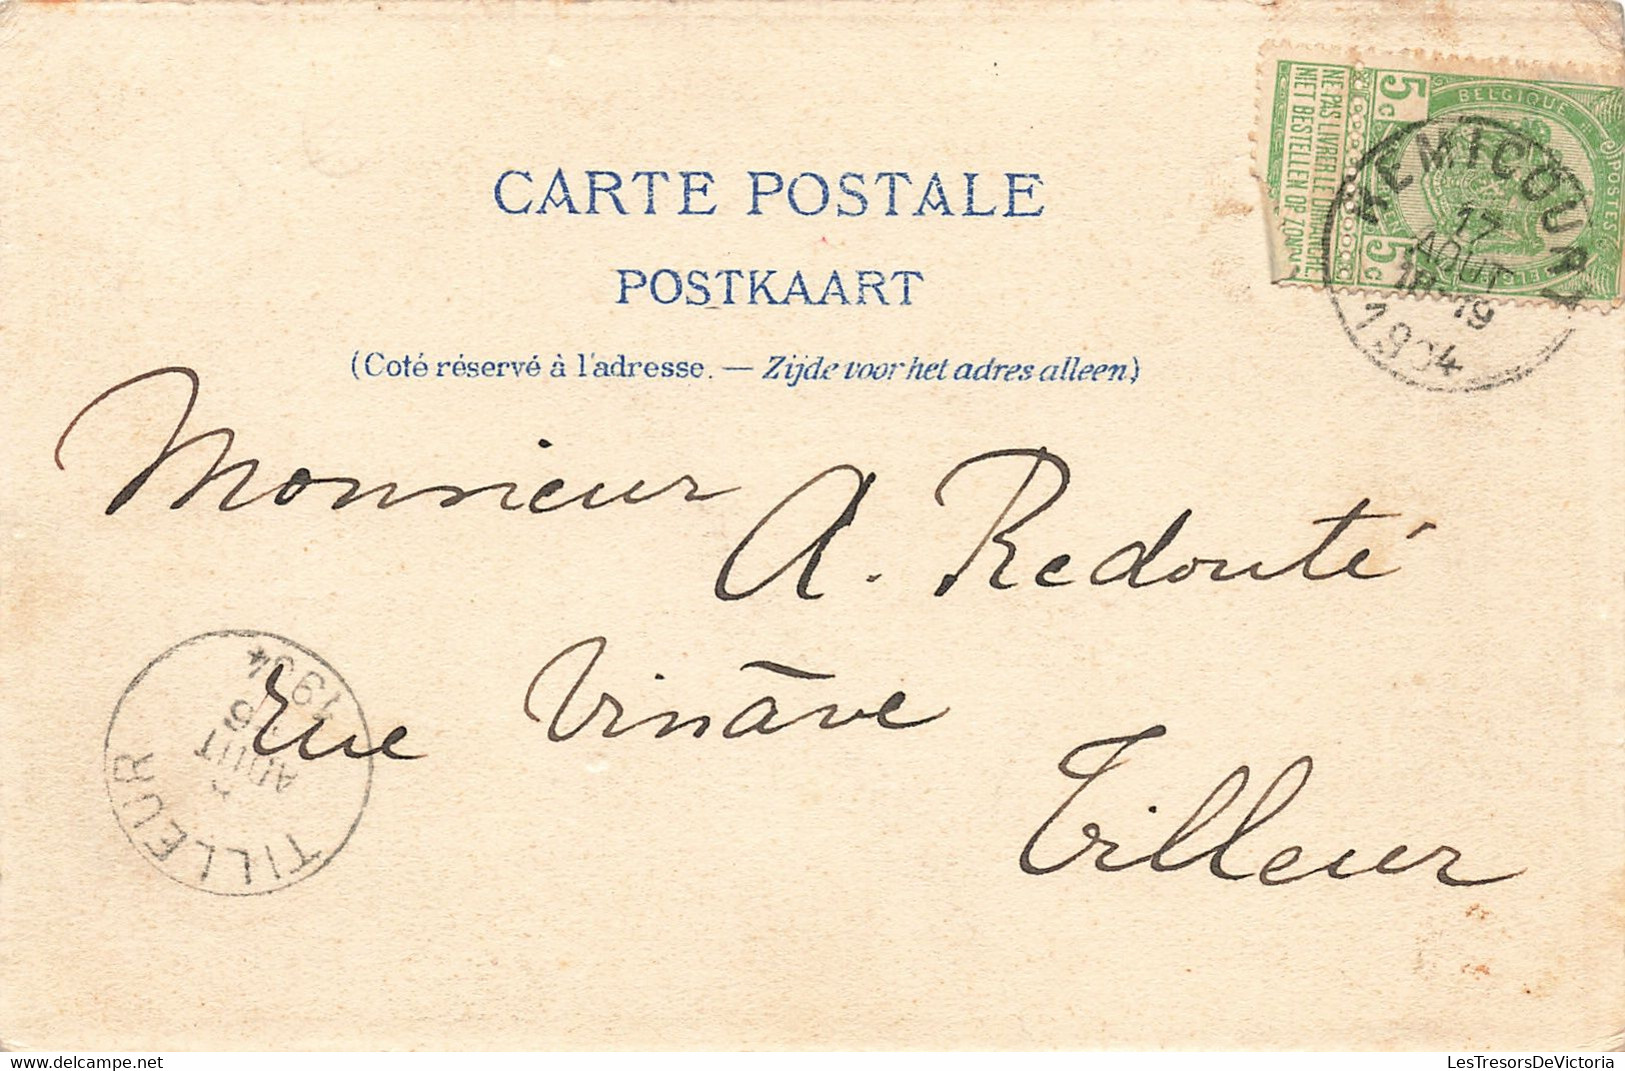 CARTE POSTALE
POSTKAART
(Coté réservé à l'adresse. — Zijde voor het adres alleen)
NE PAS LIVRER LE DIMANCHE
NIET BESTELLEN OP ZON
5c BELGIQUE POSTES
5c BELGIË
REMICOURT
17
AOUT
18-19
1904
Monsieur
A. Redouté
Rue Vinâve
Tilleur
TILLEUR
AOUT
1904
LesTresorsDeVictoria